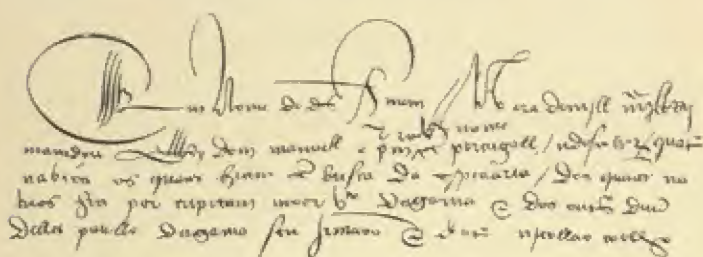 Em Nome de ds Amem Na era de mill
mandou Rey dom manuell o portugall / a descobrir quatro
navios os quaes hiam em busca da especiaria / dos quaes na
vios hia por capitam moor Vco dagama e dos outros duu
delles paullo dagama seu Jrmaao e do outro nicollao coelho